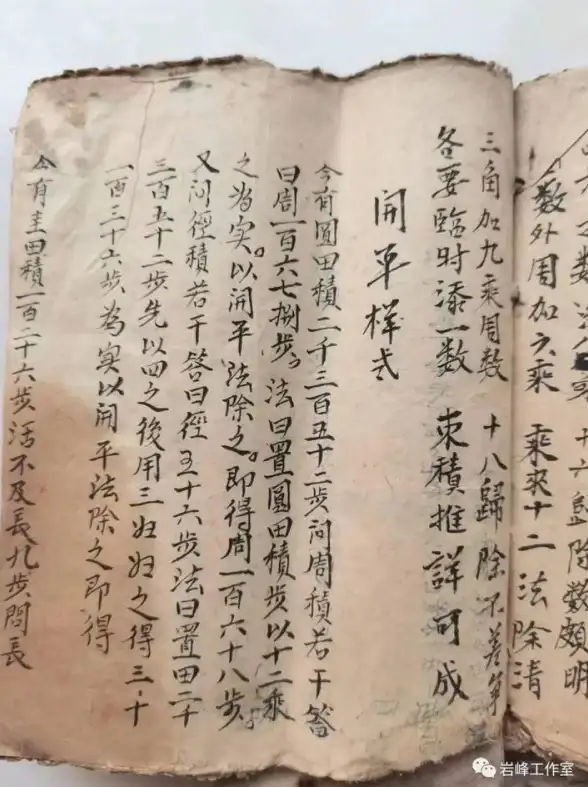 十六歸除數頗明
數外周加六乘 乘來十二法除清
三角加九乘周數 十八歸除不差爭
各要臨时添一數 束積推詳可成
開平樣式
今有圓田積二千三百五十二步问周積若干答
曰周一百六七捌步。法曰置圓田積步以十二乘
之為实。以開平法除之。即得周一百六十八步。
又问徑積若干答曰徑五十六步法曰置田二千
三百五十二步先以四之後用三妇妇之得三千
一百三十六步為实以開平法除之即得
今有圭田積一百二十六步活不及長九步問長
岩峰工作室